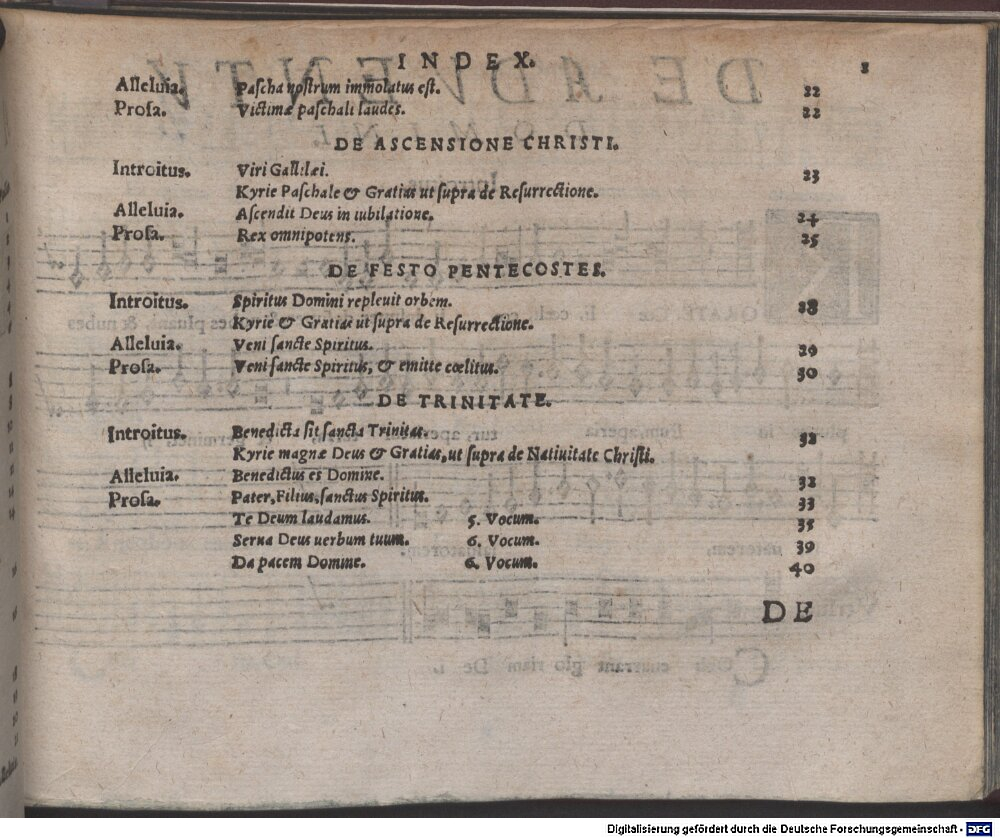 INDEX. 3
Alleluia. Paſcha noſtrum immolatus eſt. 22
Proſa. Victimæ paſchali laudes. 22
DE ASCENSIONE CHRISTI.
Introitus. Viri Galilæi. 23
Kyrie Paſchale & Gratias ut ſupra de Reſurrectione.
Alleluia. Aſcendit Deus in iubilatione. 24
Proſa. Rex omnipotens. 25
DE FESTO PENTECOSTES.
Introitus. Spiritus Domini repleuit orbem. 28
Kyrie & Gratias ut ſupra de Reſurrectione.
Alleluia. Veni ſancte Spiritus. 29
Proſa. Veni ſancte Spiritus, & emitte cœlitus. 30
DE TRINITATE.
Introitus. Benedicta ſit ſancta Trinitas. 32
Kyrie magnæ Deus & Gratias, ut ſupra de Natiuitate Chriſti.
Alleluia. Benedictus es Domine. 32
Proſa. Pater, Filius, ſanctus Spiritus. 33
Te Deum laudamus. 5. Vocum. 35
Serua Deus uerbum tuum. 6. Vocum. 39
Da pacem Domine. 6. Vocum. 40
DE
Digitalisierung gefördert durch die Deutsche Forschungsgemeinschaft - DFG